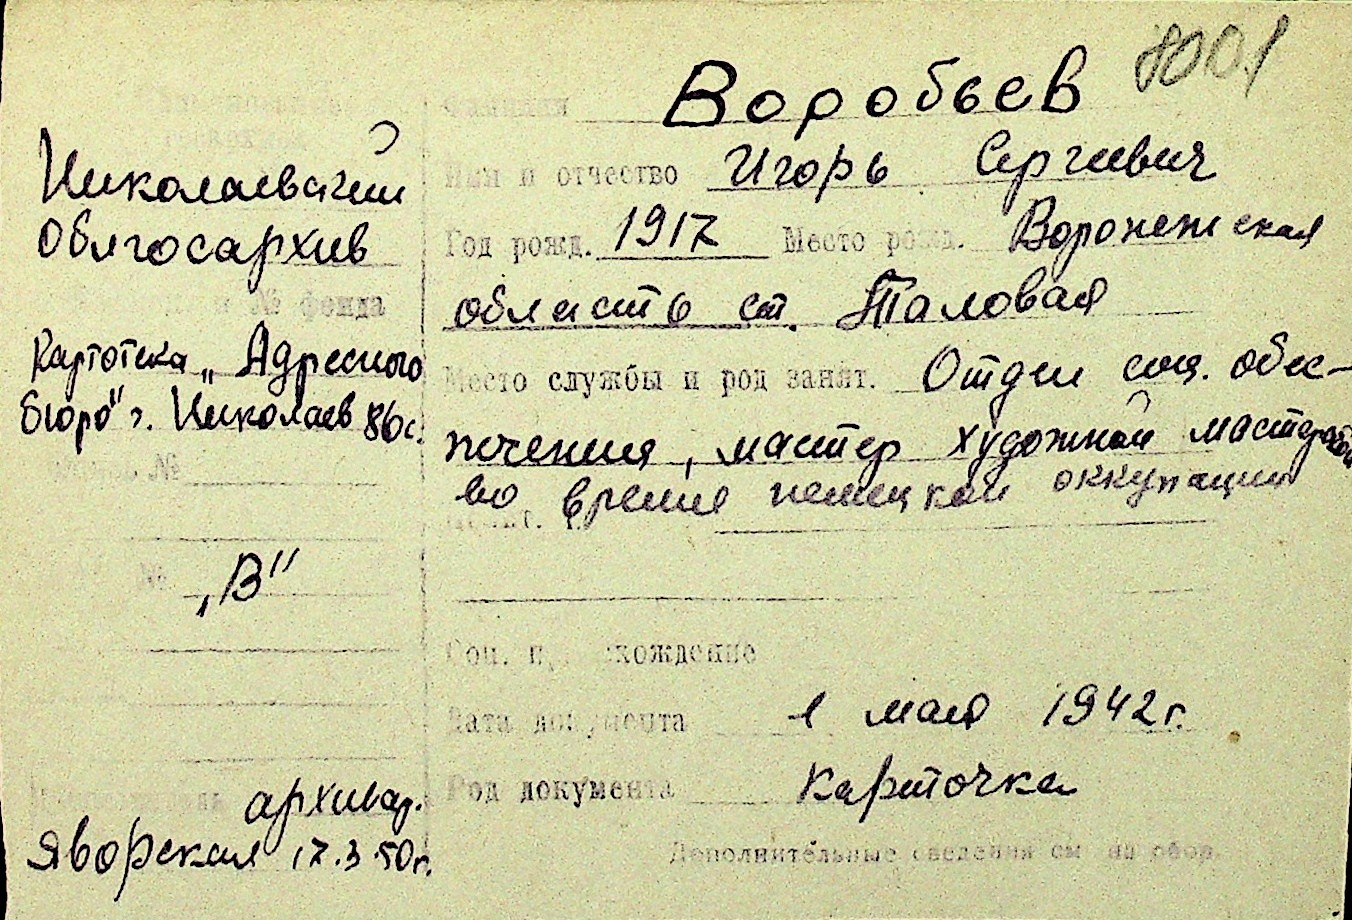 Воробьев
Фамилия
Николаевский
облгосархив
№ фонда
Картотека „Адресного
бюро" г. Николаев 86с.
№
№ „В"
архивар.
Яворская 17.3.50г.
Имя и отчество Игорь Сергиевич
Год рожд. 1917 Место рожд. Воронежская
область ст. Таловая
Место службы и род занят. Отдел соц. обес-
печения, мастер художной мастерской
во время немецкой оккупации
Соц. происхождение
Дата документа 1 мая 1942г.
Род документа карточка
Дополнительные сведения см на обор.